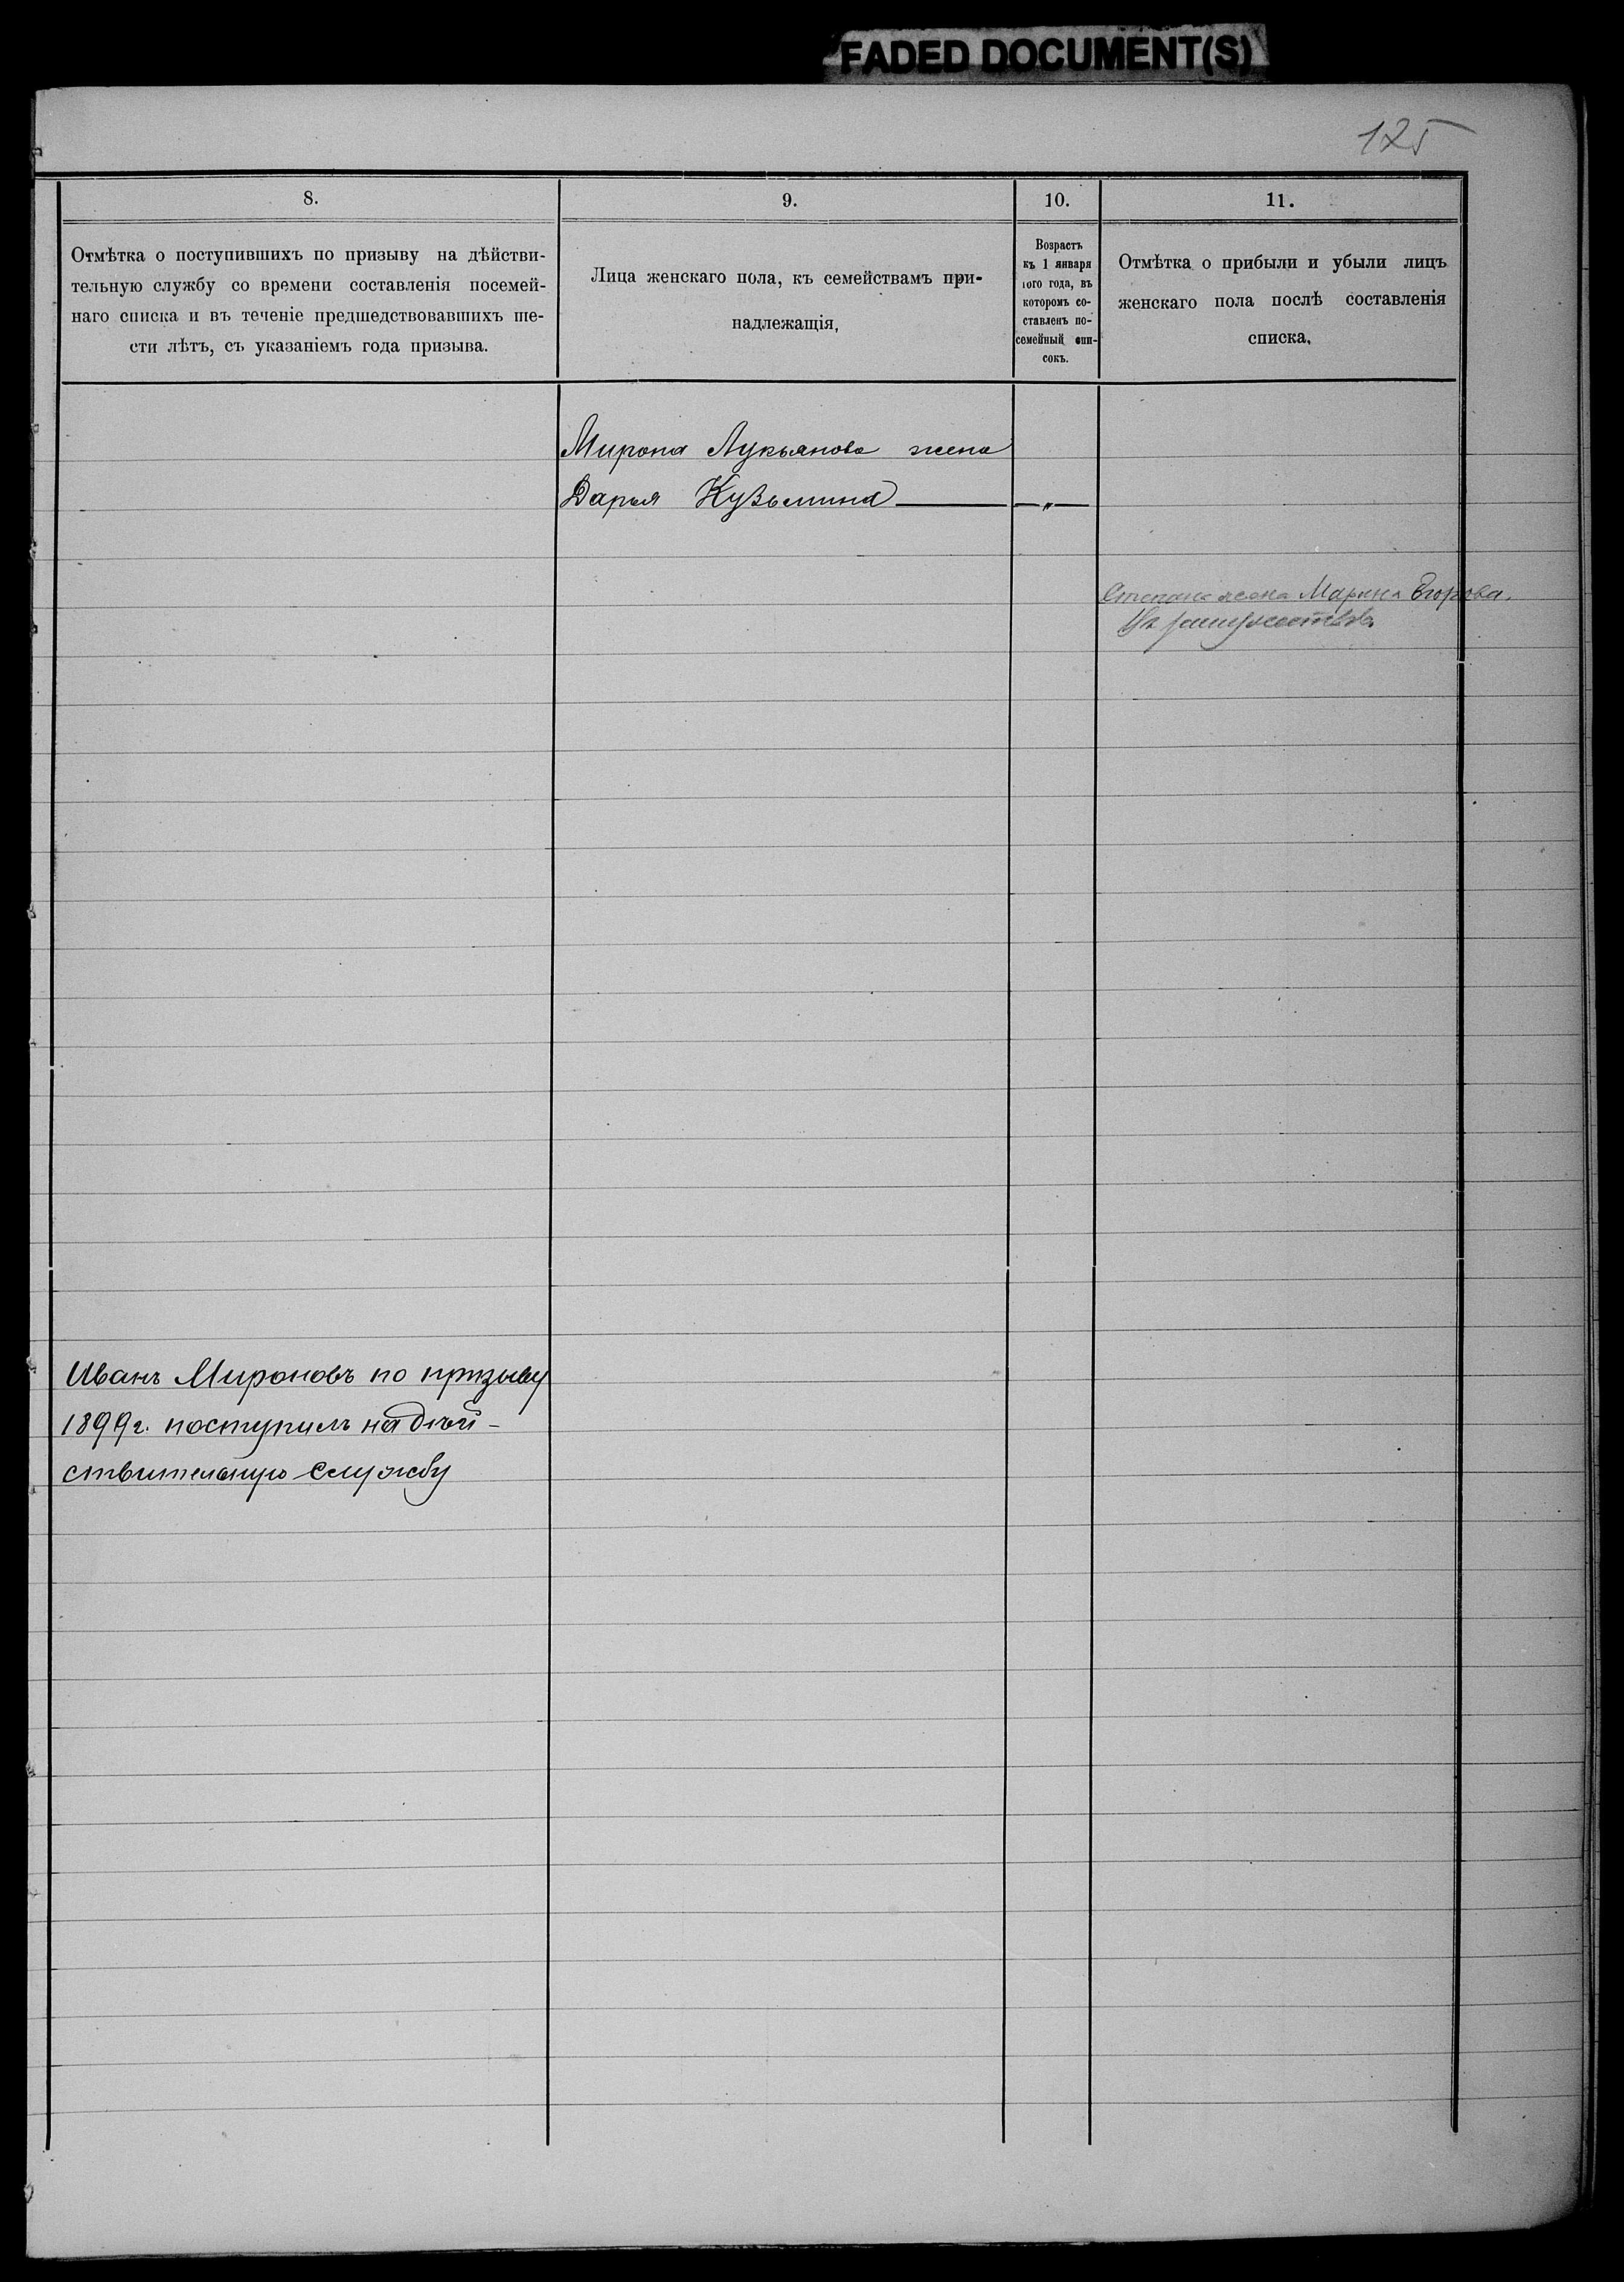 FADED DOCUMENT(S)
125
8.
Отмѣтка о поступившихъ по призыву на дѣйстви-
тельную службу со времени составленія посемей-
наго списка и въ теченіе предшедствовавшихъ ше-
сти лѣтъ, съ указаніемъ года призыва.
9.
Лица женскаго пола, къ семействамъ при-
надлежащія,
10.
Возрастъ
къ 1 января
того года, въ
которомъ со-
ставленъ по-
семейный спи-
сокъ.
11.
Отмѣтка о прибыли и убыли лицъ
женскаго пола послѣ составленія
списка.
Мирона Лукьянова жена
Дарья Кузьмина — „ —
Степана жена Марина Егорова.
Иванъ Мироновъ по призыву
1899г. поступилъ на дѣй-
ствительную службу